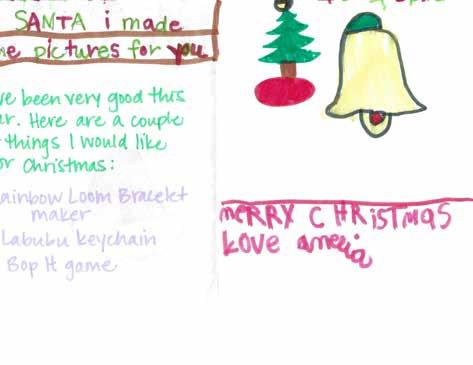 SANTA i made
me pictures for you
ve been very good this
ar. Here are a couple
things I would like
or Christmas:
ainbow Loom Bracelet
maker
Labubu keychain
Bop It game
MERRY CHRiSTMAS
LOVE amelia